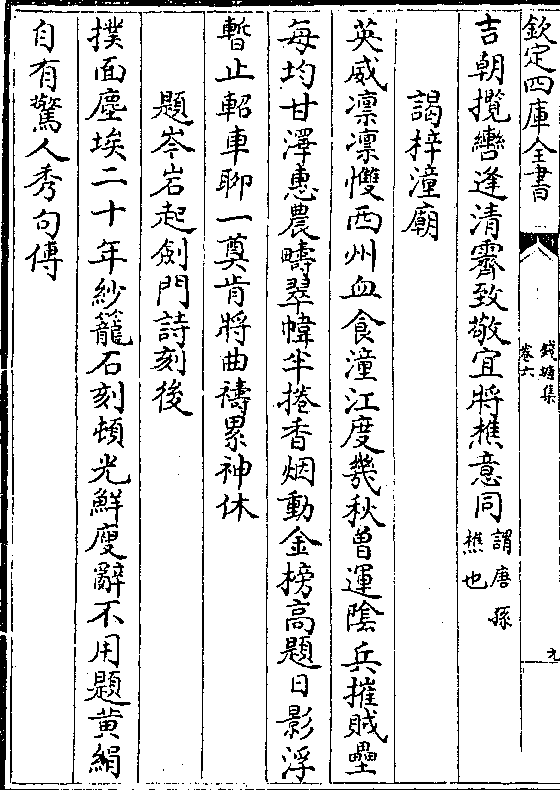 欽定四庫全書
錢塘集
卷六
九
吉朝攬轡逢清霽致敬宜將樵意同謂唐孫樵也
謁梓潼廟
英威凛凛慴西州血食潼江度幾秋曾運陰兵摧賊壘
每均甘澤惠農疇翠幃半捲香烟動金榜高題日影浮
暫止軺車聊一奠肯將曲禱累神休
題岑岩起劍門詩刻後
撲面塵埃二十年紗籠石刻頓光鮮廋辭不用題黄絹
自有驚人秀句傳